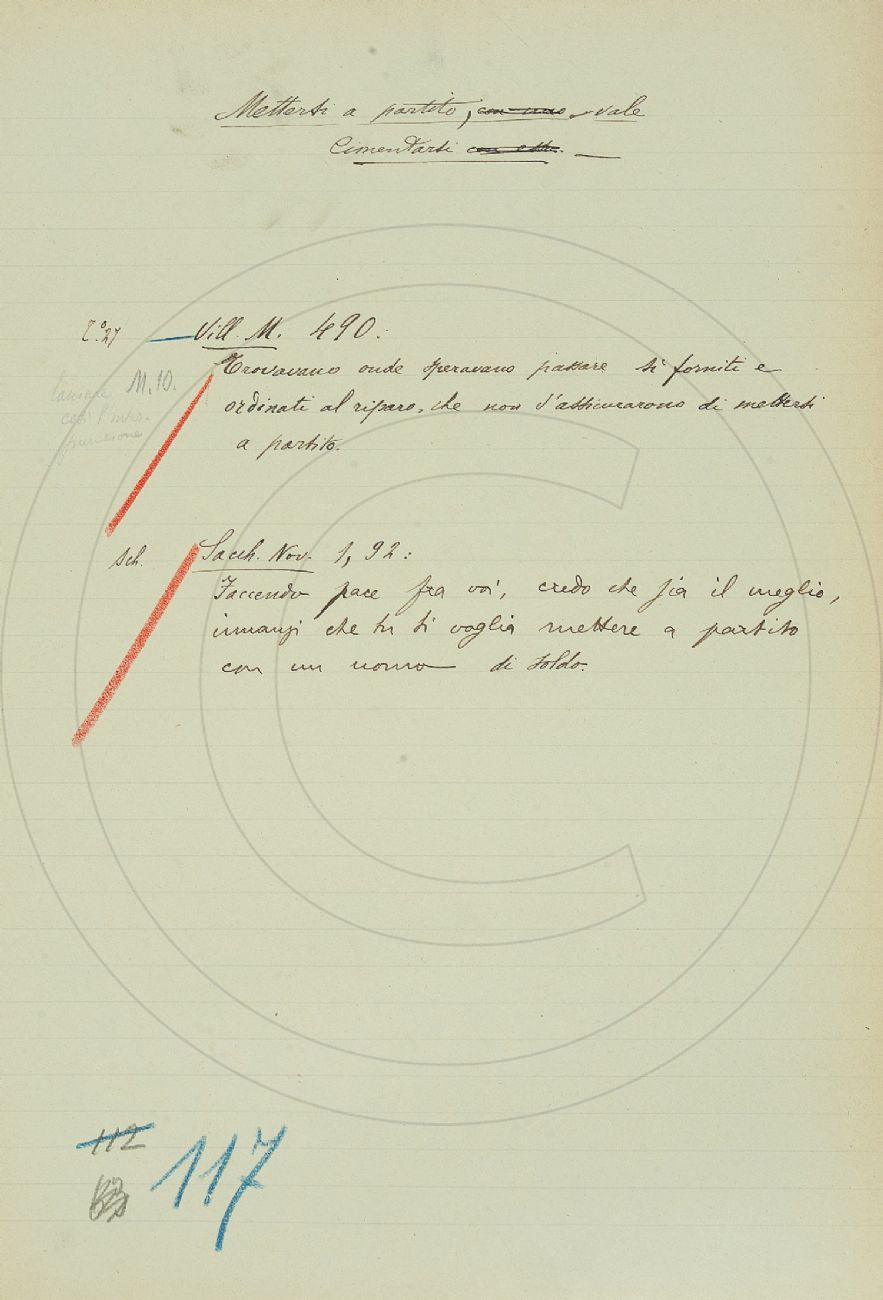 Mettersi a partito, con uno vale
Cimentarsi con esso. —
T.º 27 — Vill. M. 490:
Trovavano onde speravano passare sì forniti e
M. 10.
ordinati al riparo, che non s'assicurarono di mettersi
a partito.
Sch. Sacch. Nov. 1, 92:
Faccendo pace fra voi, credo che sia il meglio,
innanzi che tu ti voglia mettere a partito
con un uomo di soldo.
112
117